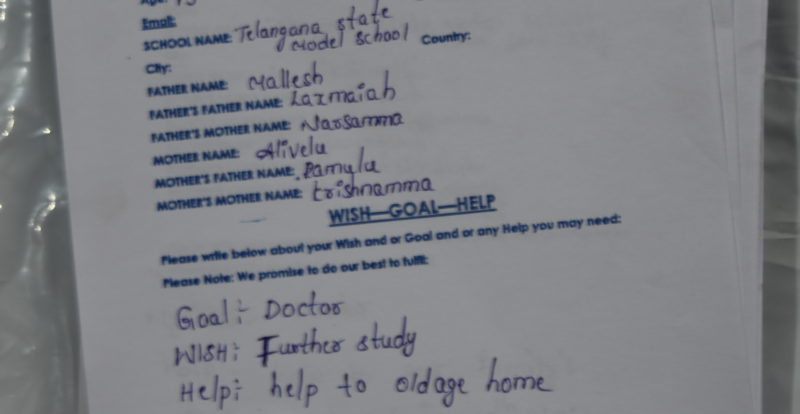 Email:
SCHOOL NAME: Telangana state
Model School Country:
City:
FATHER NAME: Mallesh
FATHER'S FATHER NAME: Laxmaiah
FATHER'S MOTHER NAME: Narsamma
MOTHER NAME: Alivelu
MOTHER'S FATHER NAME: Ramulu
MOTHER'S MOTHER NAME: krishnamma
WISH—GOAL—HELP
Please write below about your Wish and or Goal and or any Help you may need:
Please Note: We promise to do our best to fulfil:
Goal:- Doctor
WISH: Further study
Help: help to oldage home